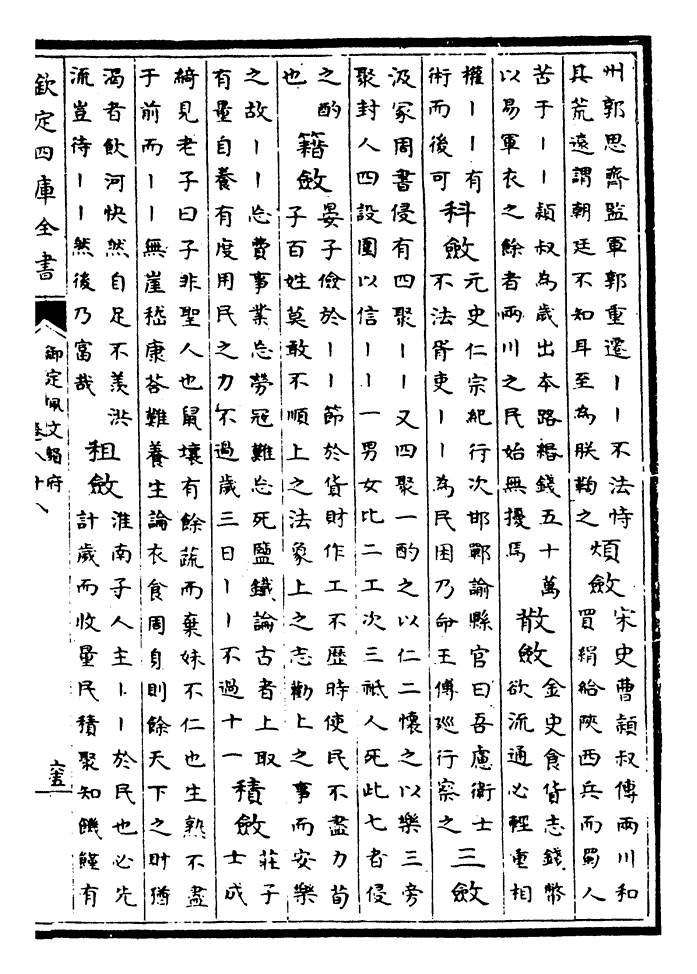 州郭思齊監軍郭重遷丨丨不法恃
其荒遠謂朝廷不知耳至為朕鞫之
煩斂
宋史曹頴叔傳兩川和
買絹給陝西兵而蜀人
苦于丨丨頴叔為歲出本路緡錢五十萬
以易軍衣之餘者兩川之民始無擾焉
散斂
金史食貨志錢幣
欲流通必輕重相
權丨丨有
術而後可
科斂
元史仁宗紀行次邯鄲諭縣官曰吾慮衛士
不法胥吏丨丨為民困乃命王傅巡行察之
三斂
汲冢周書侵有四聚丨丨又四聚一酌之以仁二懷之以樂三旁
聚封人四設圍以信丨丨一男女比二工次三祇人死此七者侵
之酌
也
籍斂
晏子儉於丨丨節於貨財作工不歴時使民不盡力茍
子百姓莫敢不順上之法象上之志勸上之事而安樂
之故丨丨忘費事業忘勞冦難忘死鹽鐵論古者上取
有量自養有度用民之力不過歲三日丨丨不過十一
積斂
莊子
士成
綺見老子曰子非聖人也鼠壤有餘蔬而棄妹不仁也生熟不盡
于前而丨丨無崖嵇康荅難養生論衣食周身則餘天下之財猶
渴者飲河快然自足不羨洪
流豈待丨丨然後乃富哉
租斂
淮南子人主丨丨於民也必先
計歲而收量民積聚知饑饉有
欽定四庫全書
御定佩文韻府
卷八十八
六五